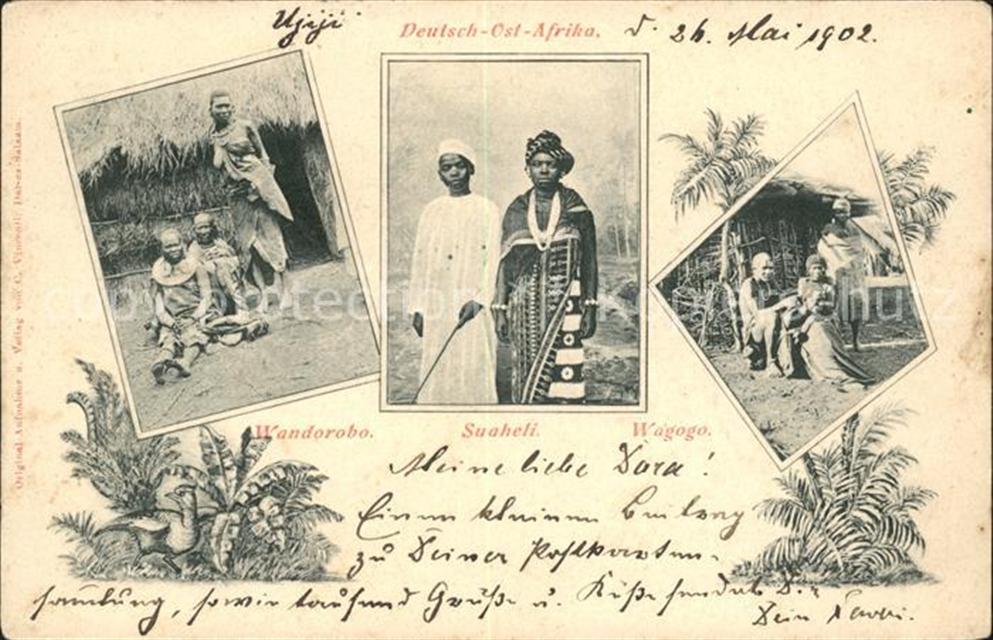 Ujiji
Deutsch-Ost-Afrika.
d. 26. Mai 1902.
Original Aufnahme u. Verlag von C. Vincenti, Dar-es-Salaam.
copyright protection Kopierschutz
Wandorobo. Suaheli. Wagogo.
Meine liebe Dora!
Einen kleinen Beitrag
zu Deiner Postkarten-
samlung, sowie tausend Grüße u. Küße sendet D.
Dein